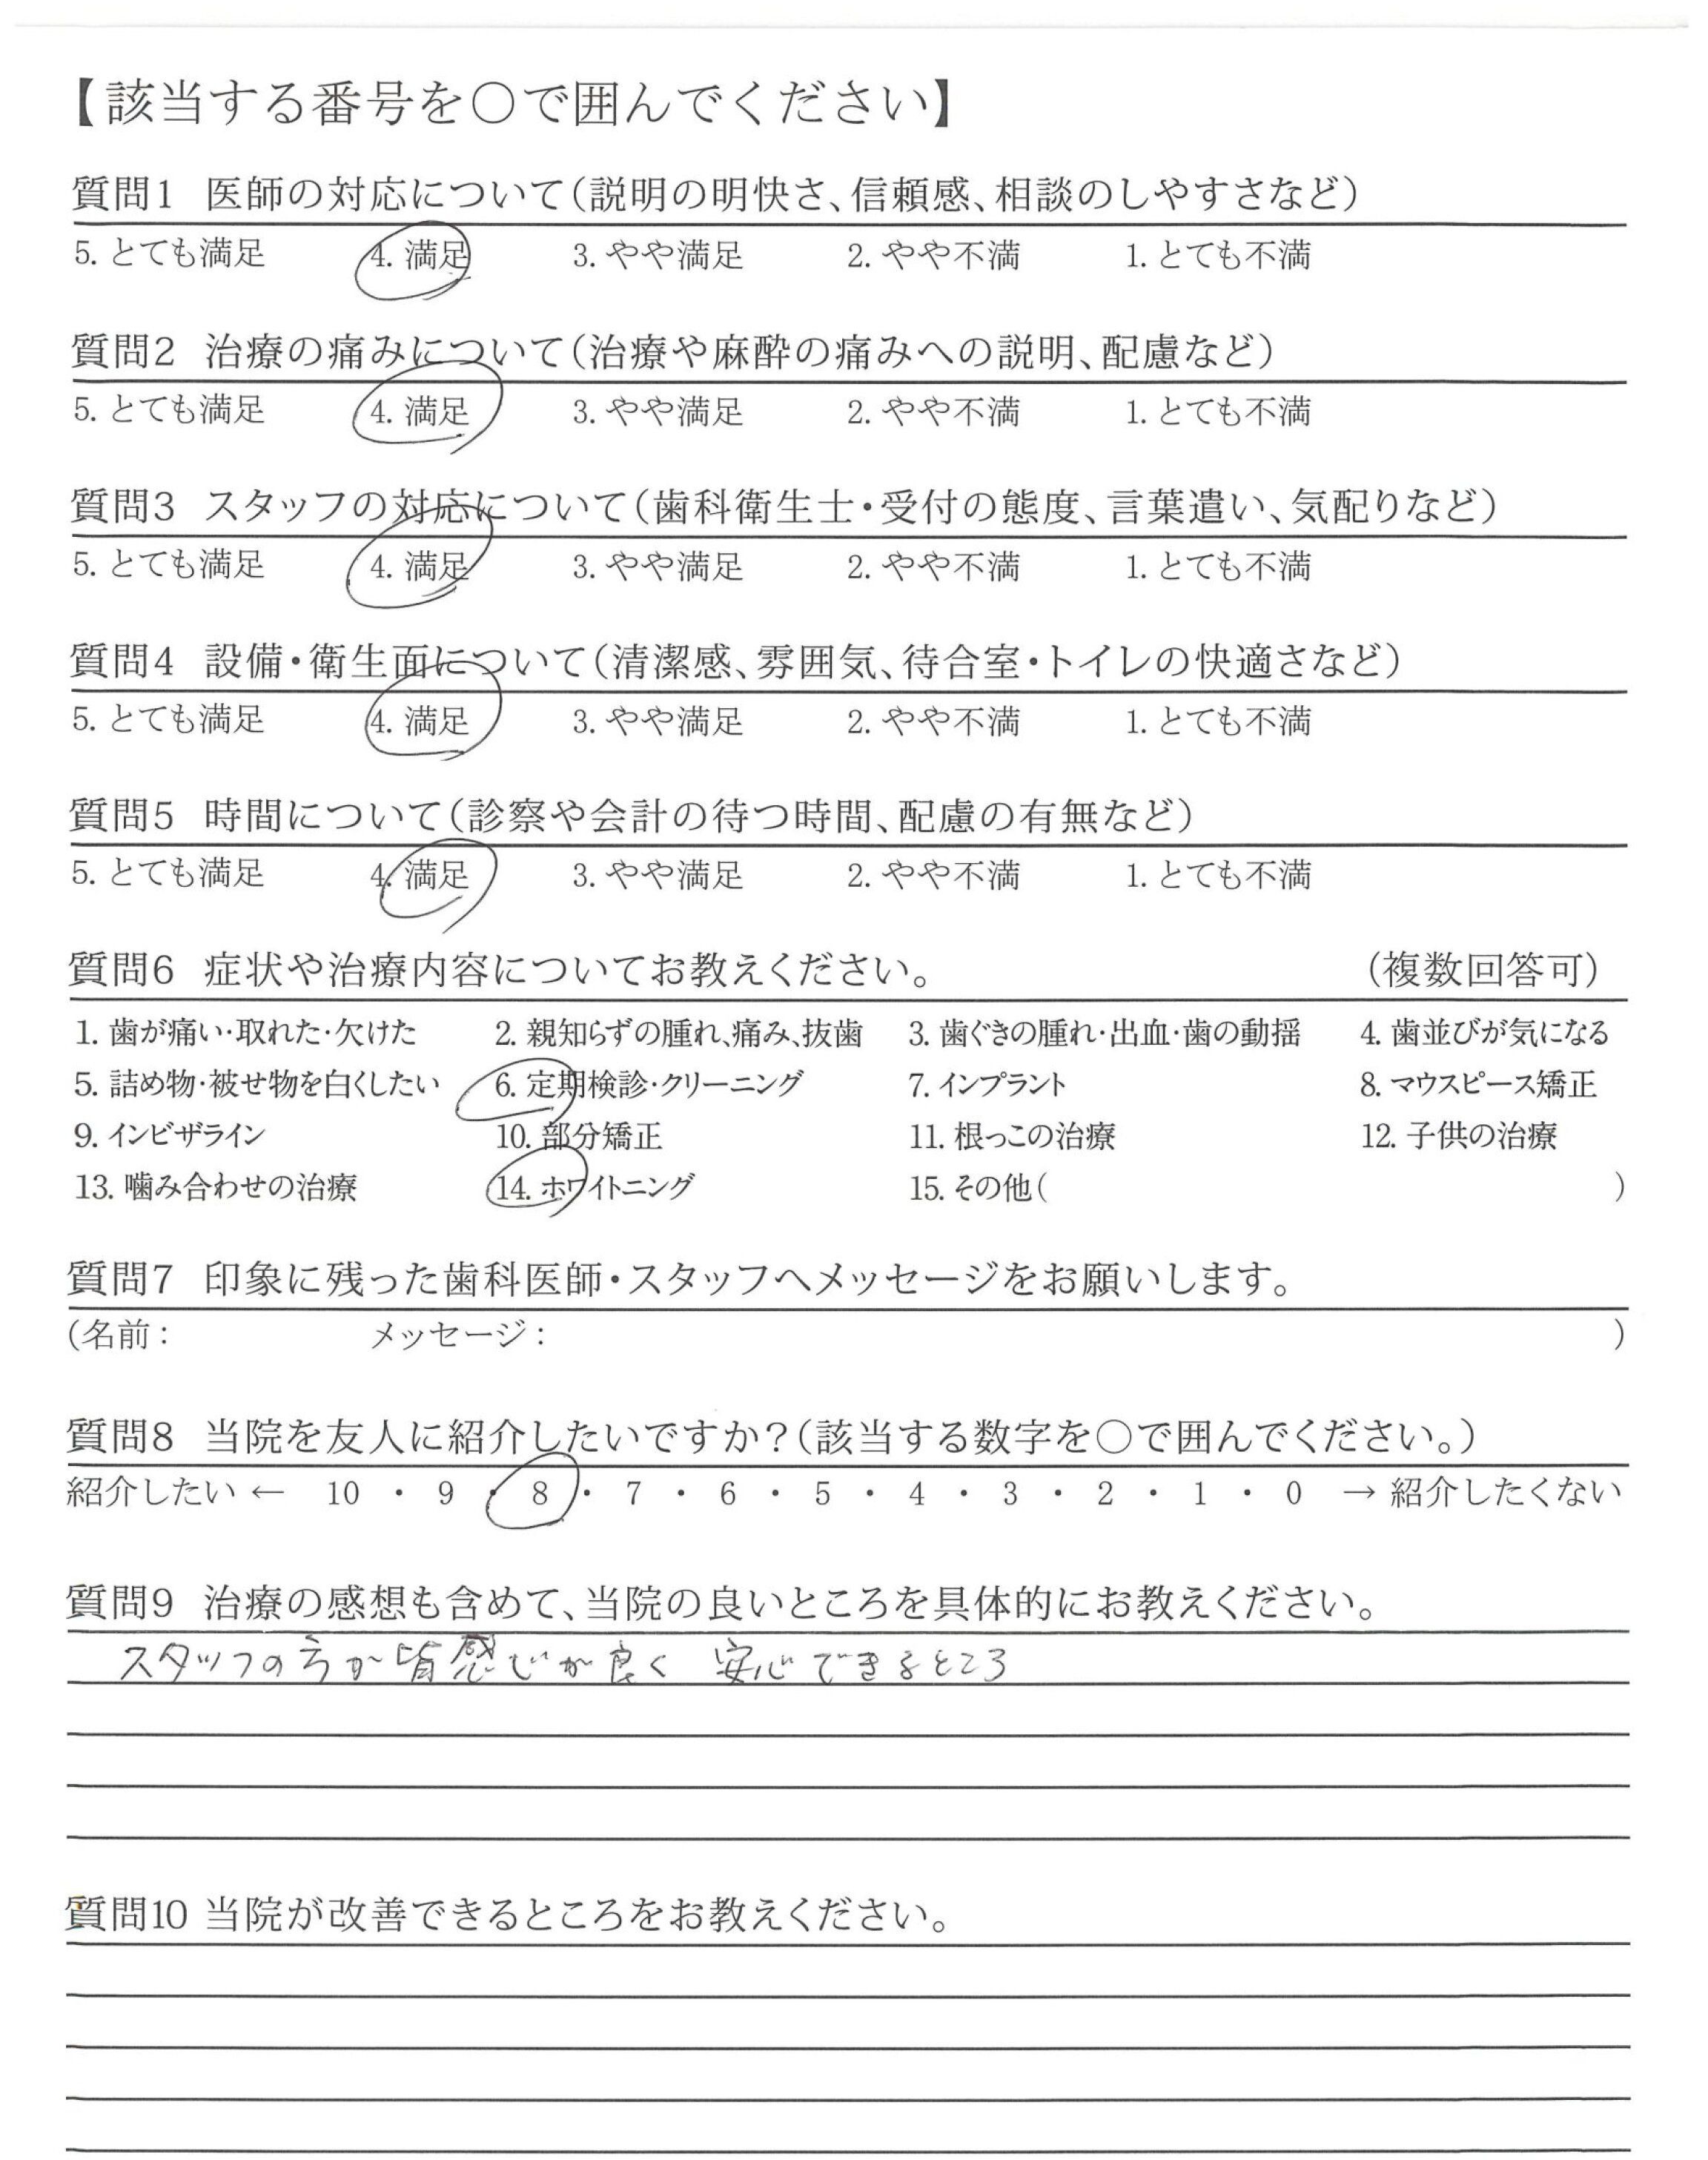 【該当する番号を○で囲んでください】
質問1 医師の対応について(説明の明快さ、信頼感、相談のしやすさなど)
5. とても満足 4. 満足 3. やや満足 2. やや不満 1. とても不満
質問2 治療の痛みについて(治療や麻酔の痛みへの説明、配慮など)
5. とても満足 4. 満足 3. やや満足 2. やや不満 1. とても不満
質問3 スタッフの対応について(歯科衛生士・受付の態度、言葉遣い、気配りなど)
5. とても満足 4. 満足 3. やや満足 2. やや不満 1. とても不満
質問4 設備・衛生面について(清潔感、雰囲気、待合室・トイレの快適さなど)
5. とても満足 4. 満足 3. やや満足 2. やや不満 1. とても不満
質問5 時間について(診察や会計の待つ時間、配慮の有無など)
5. とても満足 4. 満足 3. やや満足 2. やや不満 1. とても不満
質問6 症状や治療内容についてお教えください。 (複数回答可)
1. 歯が痛い・取れた・欠けた 2. 親知らずの腫れ、痛み、抜歯 3. 歯ぐきの腫れ・出血・歯の動揺 4. 歯並びが気になる
5. 詰め物・被せ物を白くしたい 6. 定期検診・クリーニング 7. インプラント 8. マウスピース矯正
9. インビザライン 10. 部分矯正 11. 根っこの治療 12. 子供の治療
13. 噛み合わせの治療 14. ホワイトニング 15. その他( )
質問7 印象に残った歯科医師・スタッフへメッセージをお願いします。
(名前: メッセージ: )
質問8 当院を友人に紹介したいですか?(該当する数字を○で囲んでください。)
紹介したい ← 10 ・ 9 ・ 8 ・ 7 ・ 6 ・ 5 ・ 4 ・ 3 ・ 2 ・ 1 ・ 0 → 紹介したくない
質問9 治療の感想も含めて、当院の良いところを具体的にお教えください。
スタッフの方が皆感じが良く 安心できるところ
質問10 当院が改善できるところをお教えください。